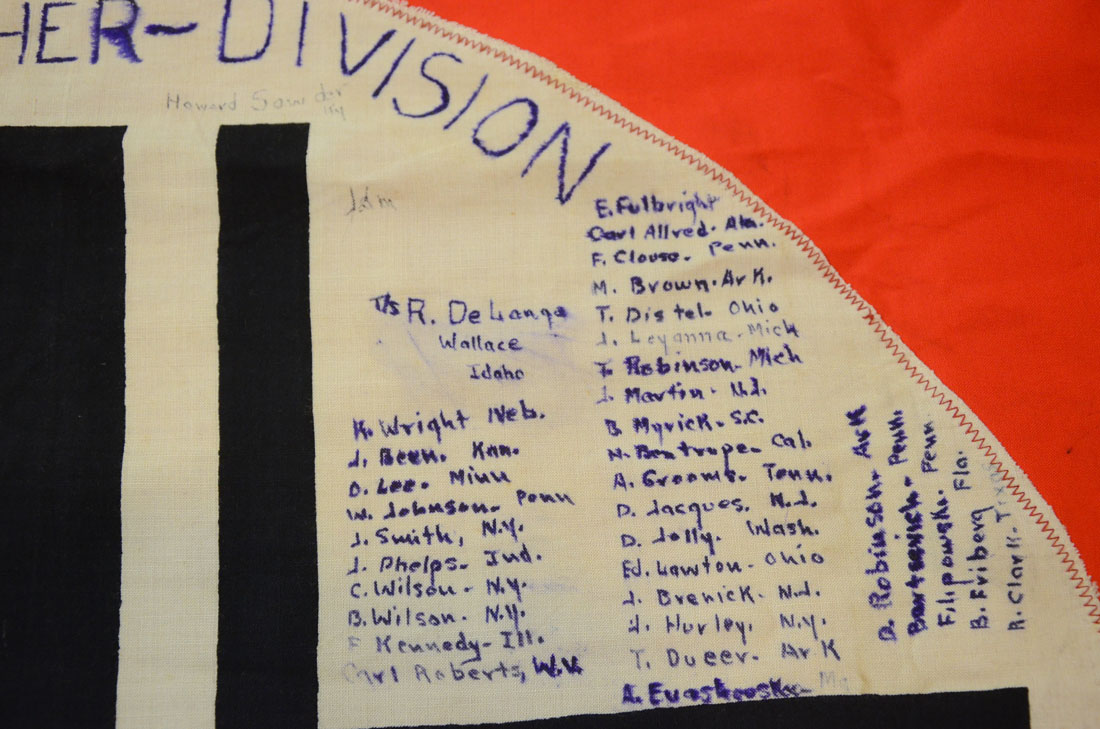 HER-DIVISION
Howard Sowder
Ky
Jdm
T/5 R. DeLange
Wallace
Idaho
K. Wright Neb.
J. Been. Kan.
D. Lee. Minn
W. Johnson. Penn
J. Smith, N.Y.
J. Phelps. Ind.
C. Wilson. N.Y.
B. Wilson. N.Y.
F Kennedy-Ill.
Carl Roberts, W.V.
E. Fulbright
Carl Allred. Ala.
F. Clouse. Penn.
M. Brown. Ark.
T. Distel. Ohio
J. Leyanna. Mich
F. Robinson. Mich
J. Martin. N.J.
B. Myrick. S.C.
N. Bentrupe. Cal.
A. Grooms. Tenn.
D. Jacques. N.J.
D. Jolly. Wash.
Ed. Lawton. Ohio
J. Brenick. N.J.
J. Hurley. N.Y.
T. Dueer. Ark
A.
D. Robinson. Ark
Penn.
Filipowski. Penn
B. Friberg Fla.
R. Clark. Texas